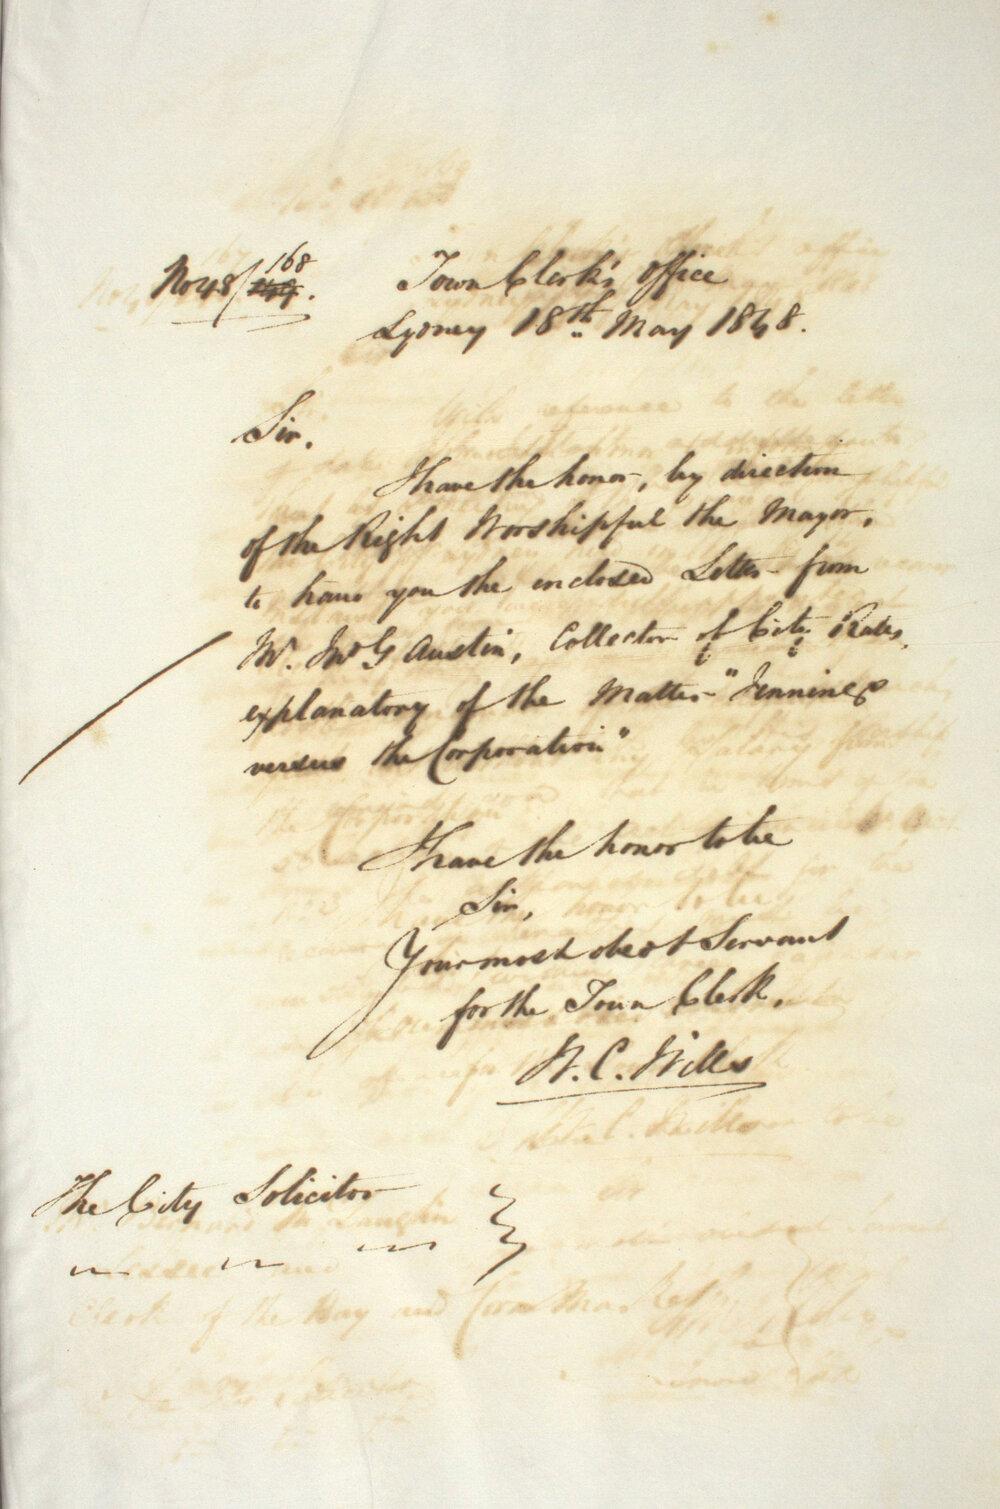 No 48/168.
Town Clerk's Office
Sydney 18th May 1848.
Sir,
I have the honor, by direction
of the Right Worshipful the Mayor,
to hand you the enclosed Letter from
Mr. Jno G Austin, Collector of City Rates,
explanatory of the Matter "Jennings
versus the Corporation"
I have the honor to be
Sir,
Your most obed t Servant
for the Town Clerk,
W. C. Wills
The City Solicitor